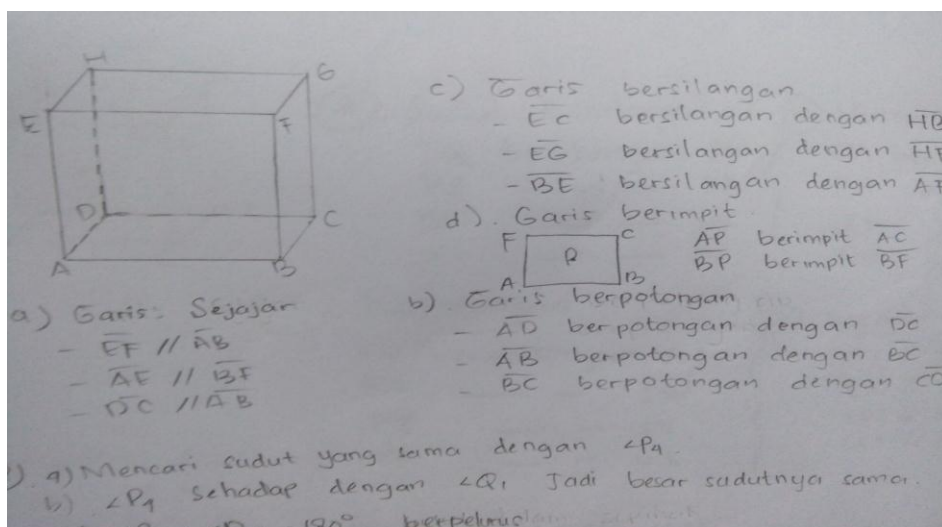 H
G
E
F
D
C
A
B
a) Garis: Sejajar
- EF // AB
- AE // BF
- DC // AB
c) Garis bersilangan
- EC bersilangan dengan
- EG bersilangan dengan
- BE bersilangan dengan
d). Garis berimpit
F C AP berimpit AC
P BP berimpit BF
A B
b) Garis berpotongan
- AD berpotongan dengan DC
- AB berpotongan dengan BC
- BC berpotongan dengan
). a) Mencari sudut yang sama dengan ∠P4.
b) ∠P4 sehadap dengan ∠Q1 Jadi besar sudutnya sama.
180°